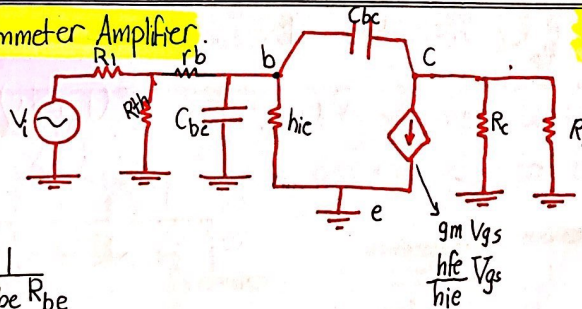 mmeter Amplifier.
R1 rb b Cbc C
Vi Rth Cbe hie Rc R
e
gm Vgs
hfe Vgs
hie
1
be Rbe